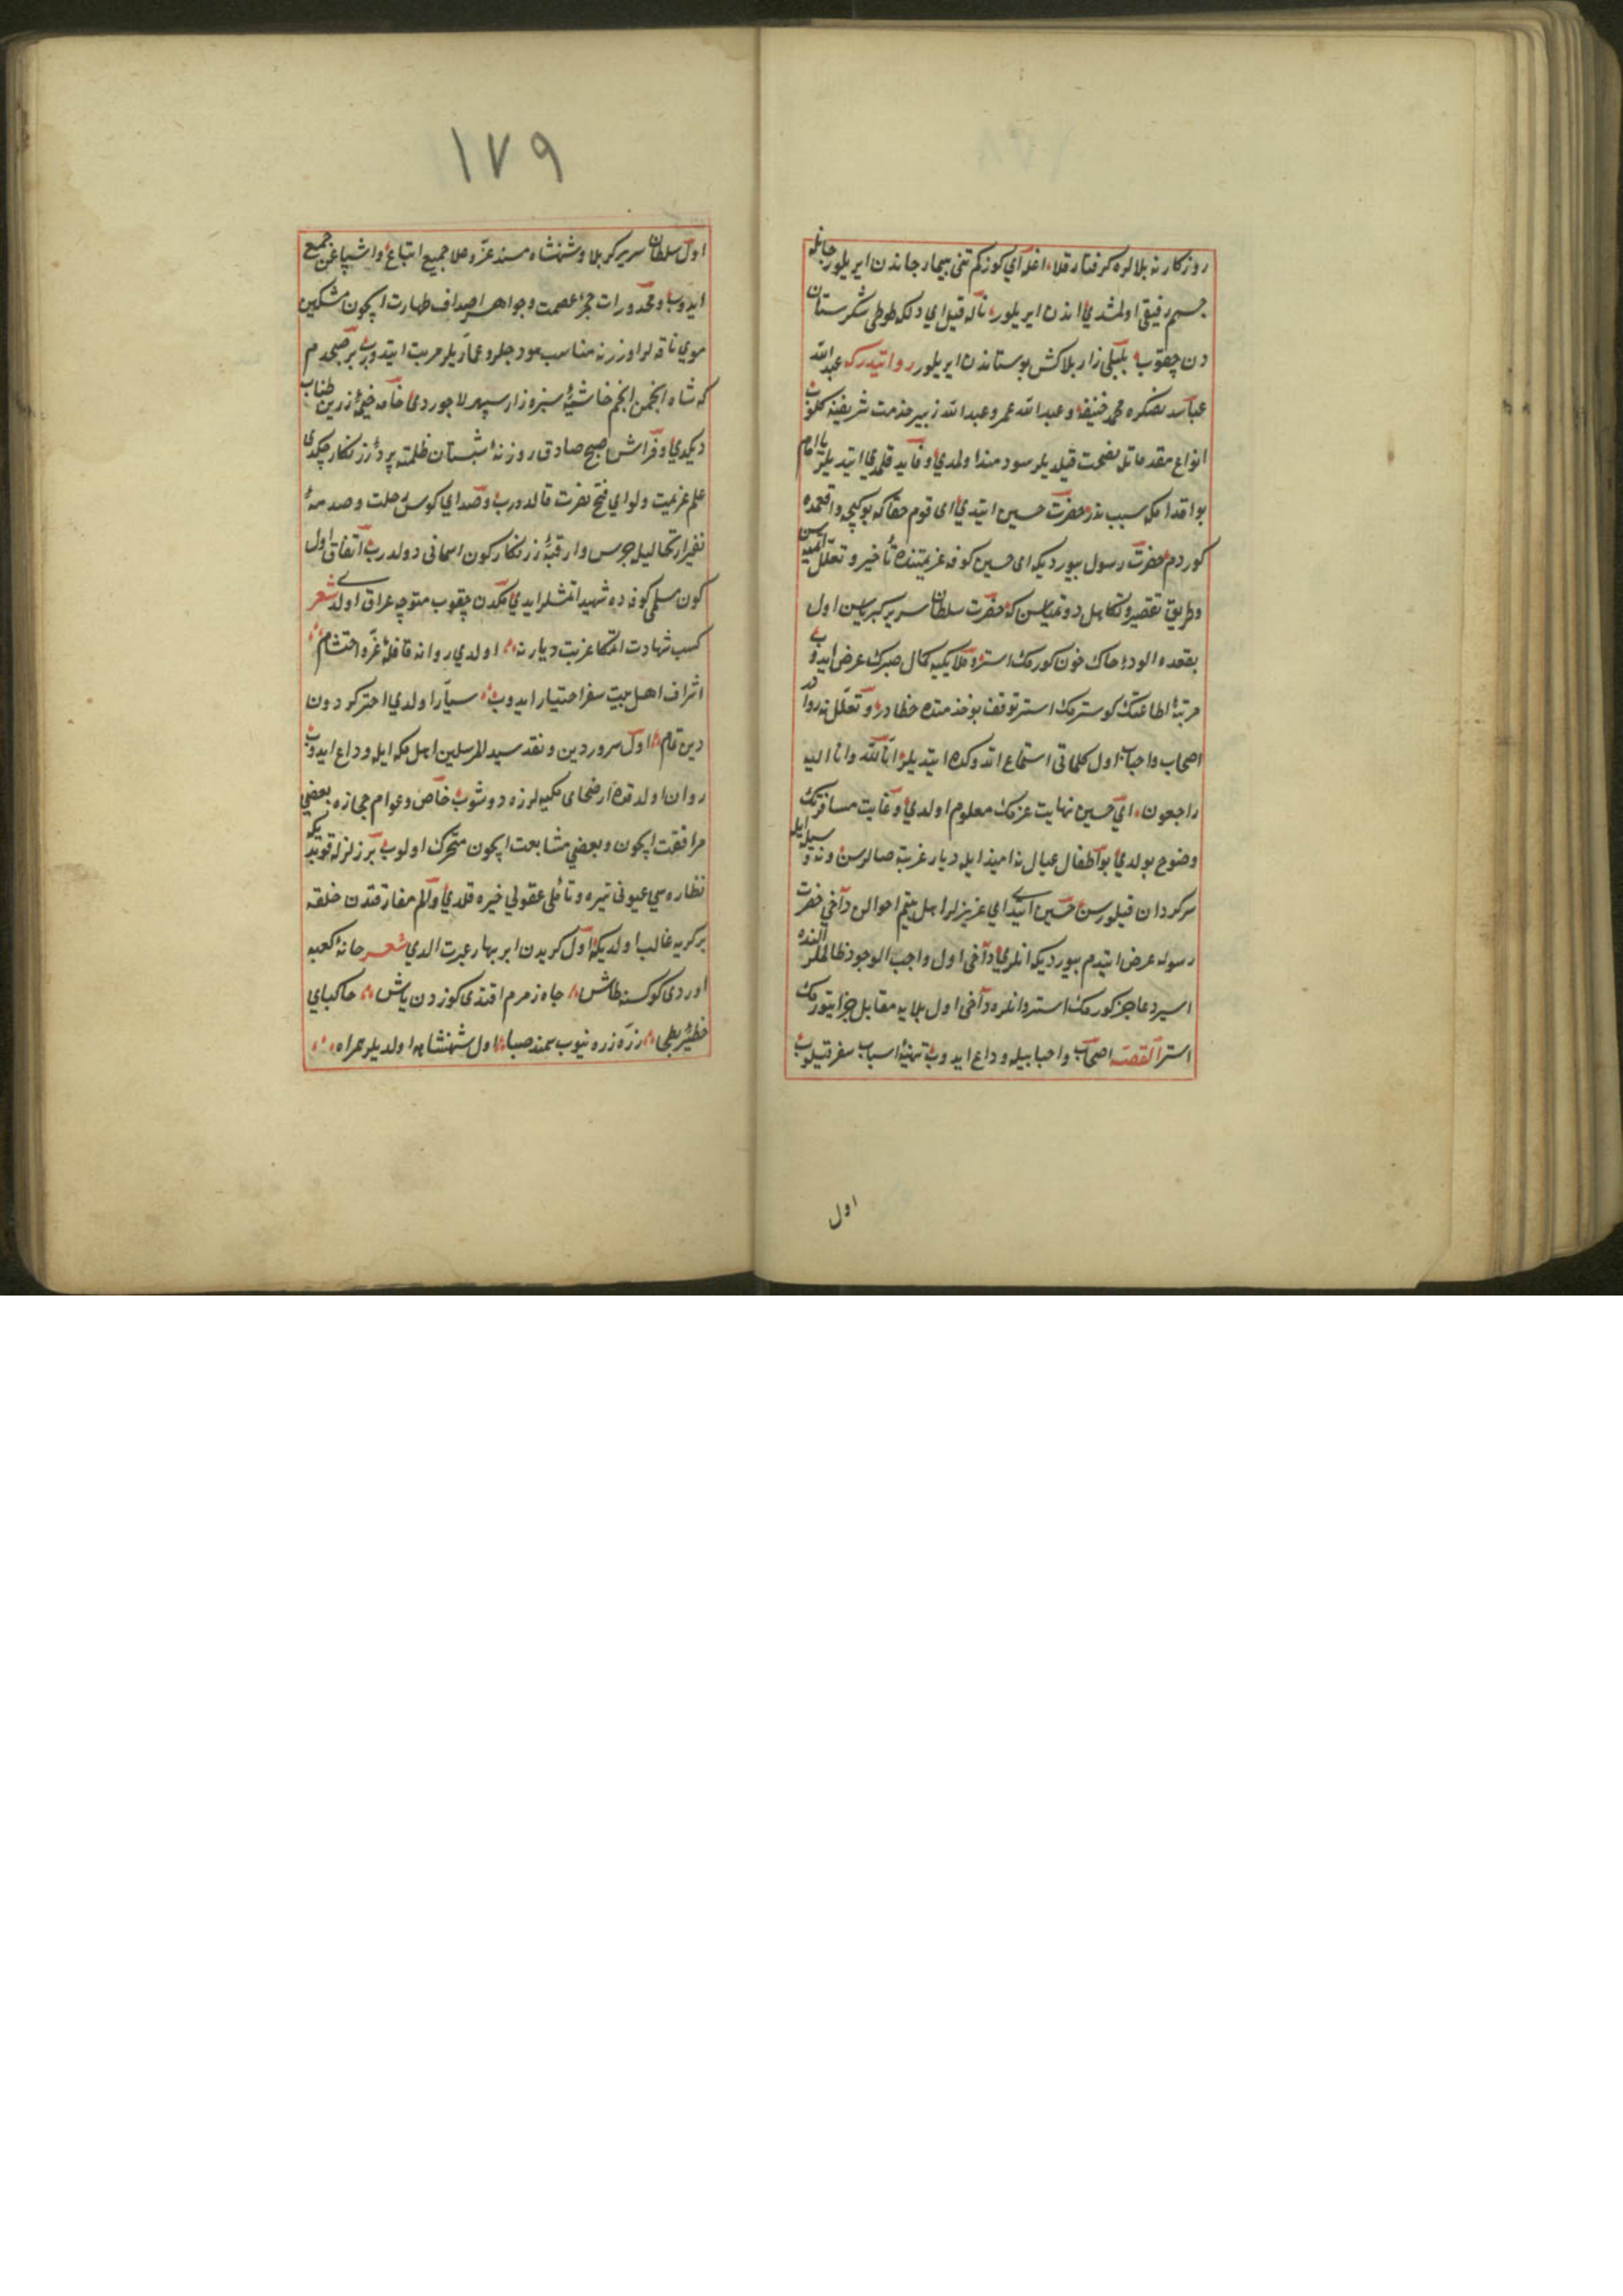 روزكار نه بلالره كرفتار قلا، اغله اي كوزكم تنى بيمار جاندن ايريلور جانله
جسم رفيقى اولمشدي اندن ايريلور ناله قيل اي دلكه طوطى شكرستان
دن چقوب بلبلى زار بلاكش بوستاندن ايريلور روايتدركه عبد الله
عباسد نصكره محمد حنيفه وعبد الله عمر وعبد الله زبير خدمت شريفنه كلوب
انواع مقدماتله نصيحت قيلديلر سودمند اولمدي وفايده قلمدي ايتديلر يا امام
بو اقدامكه سبب ندر حضرت حسين ايتدي اى قوم حقاكه بوكيجه واقعمده
كوردم حضرت رسول بيورديكه اى حسين كوفه عزيمتنده تأخير وتعلل ايتميه سن
وطريق تقصير وتكاهل دوتميه سن كه حضرت سلطان سرير كبريا سن اول
بقعده الوده خاك خون كورمك استر وملايكيه كمال صبرك عرض ايدوب
مرتبۀ اطاعتك كوسترمك استر توقف بو خدمتده خطادر وتعلل نه روادر
اصحاب واحباب اول كلماتى استماع اتدوكده ايتديلر انا لله وانا اليه
راجعون، اي حسين نهايت عزمك معلوم اولدي وغايت مسافرتك
وضوح بولدي بو اطفال عيال نه اميد ايله ديار غربته صالرسن ونه وسيله ايله
سركردان قيلورسن حسين ايتدي اي عزيزلر اهل بيتم احوالن دآخي حضرت
رسوله عرض ايتدم بيورديكه انلري دآخى اول واجب الوجود ظالملر النده
اسير وعاجز كورمك استر وانلره دآخى اول بلايه مقابل جزا يتورمك
استر القصه اصحاب واحبابيله وداع ايدوب تهيۀ اسباب سفر قيلوب
اول
١٧٩
اول سلطان سرير كربلا وشهنشاه مسند عز وعلا جميع اتباع واشياعن جمع
ايدوب ومخدورات حجرۀ عصمت وجواهر اصداف طهارت ايچون مشكين
موي ناقه لر اوزرنه مناسب هودجلر وعماريلر مرتب ايتدورب بر صبحدم
كه شاه انجمن انجم حاشيۀ سبزه زار سپهر لاجوردى خامه خيمۀ زرين طناب
ديكدي وفراش صبح صادق روزنۀ شبستان ظلمته پردۀ زرنكار چكدى
علم عزيمت ولواي فتح نصرت قالدورب وصداي كوس رحلت وصدمۀ
نفير ارتحاليله جرس وار قبۀ زرنكار كون اسمانى دولدرب اتفاق اول
كون مسلمى كوفه ده شهيد اتمشلر ايدي مكه دن چقوب متوجه عراق اولدي شعر
كسب شهادت اتمكا غربت ديارنه اولدي روانه قافلۀ غره احتشام
اشراف اهل بيت سفر اختيار ايدوب سيارا اولدي اختر كردون
دين تمام اول سرور دين ونقد سيد المرسلين اهل مكه ايله وداع ايدوب
روان اولدقده ارضحاى مكيه لرزه دوشوب خاص وعوام حجازه بعضي
مرافقت ايچون وبعضي مشايعت ايچون متحرك اولوب بر زلزله قوپديكه
نظاره سي عيونى تيره وتأملى عقولي خيره قلدي والم مفارقتدن خلقه
بر كريه غالب اولديكه اول كريه دن ابر بهار عبرت الدي شعر خانۀ كعبه
اوردى كوكسنه طاش چاه زمزم اقتدى كوزدن ياش خاكپاي
خطيۀ بطحا زره زره نيوب سمند صبا اول شهنشاهه اولديلر همراه